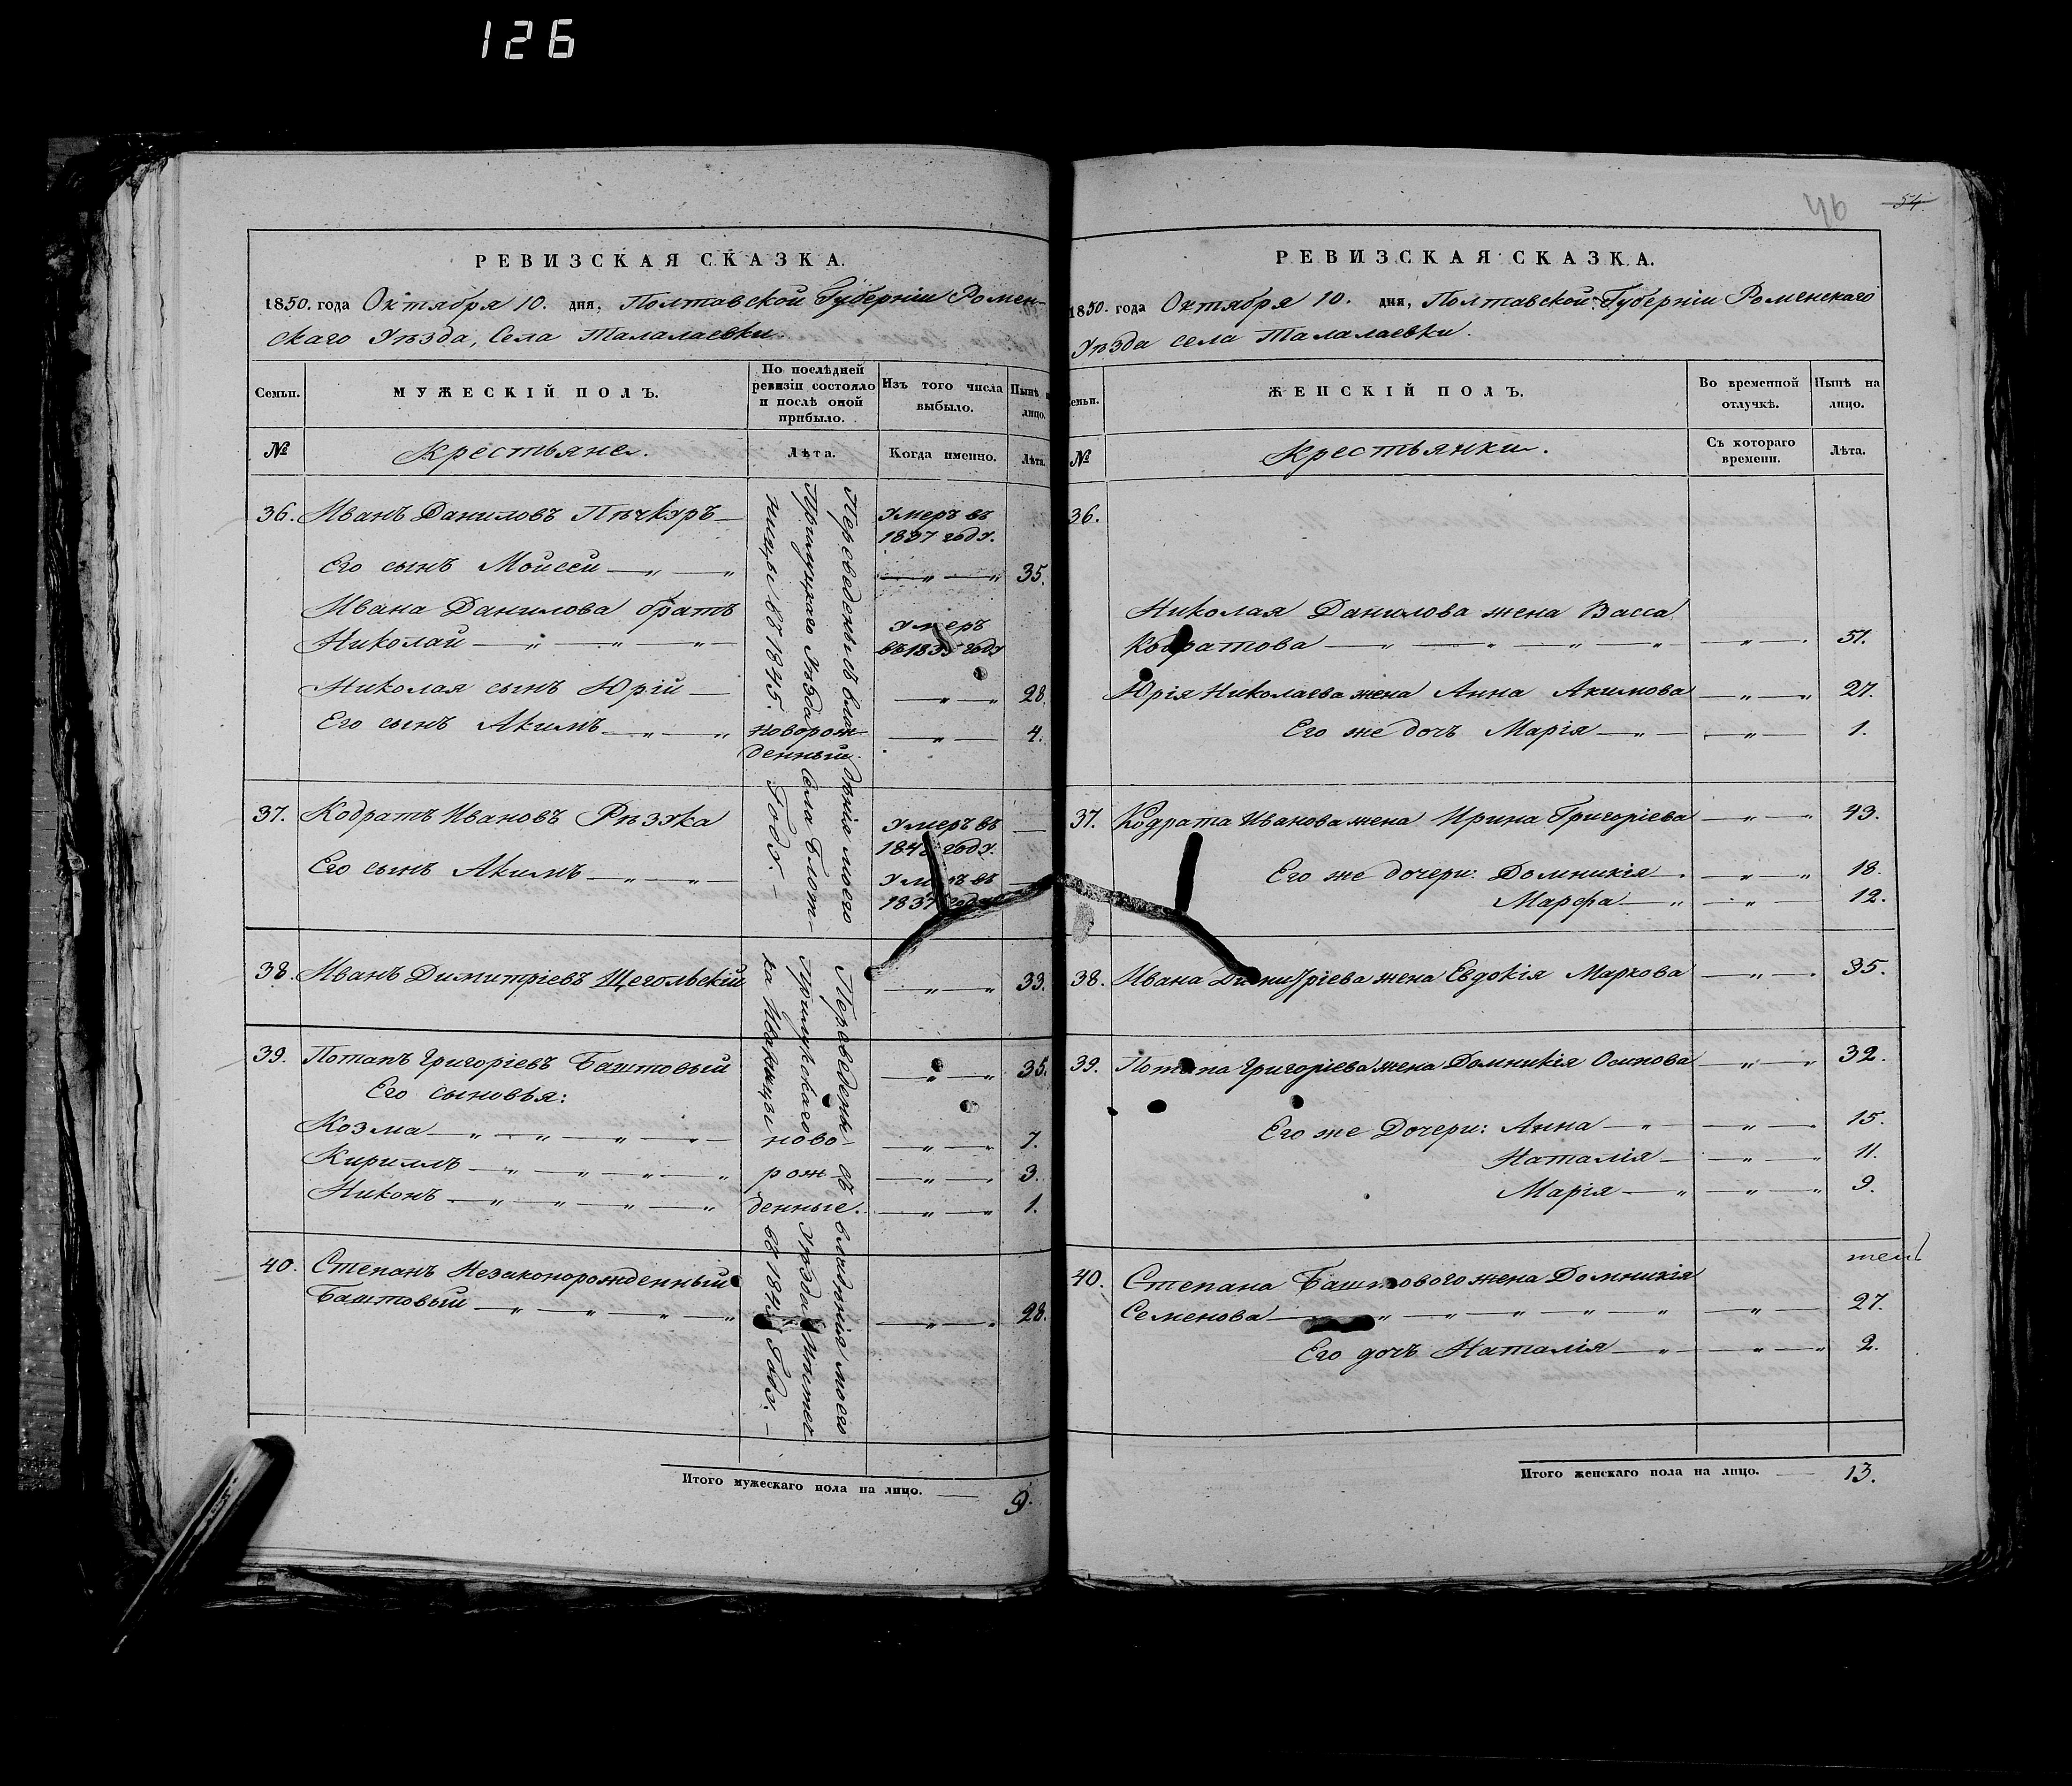 126
РЕВИЗСКАЯ СКАЗКА.
1850. года Октября 10. дня, Полтавской Губерніи Ромен-
скаго Уѣзда, Села Талалаевки
Семьи.
МУЖЕСКІЙ ПОЛЪ.
По послѣдней
ревизіи состояло
и послѣ оной
прибыло.
Изъ того числа
выбыло.
Нынѣ
лицо.
№
Крестьяне.
Лѣта.
Когда именно.
Лѣта.
Переведены съ владѣнія моего
Прилуцкаго Уѣзда Села Блот-
ницы въ 1845. Году. —
36. Иванъ Даниловъ Пѣчкуръ —
Умеръ въ
1837 году.
Его сынъ Моисей — „ — „ — „ — „ 35.
Ивана Данилова братъ
Николай — „ — „ — „ —
Умеръ
въ 1835 году
Николая сынъ Юрій — — „ — „ 28.
Его сынъ Акимъ — „ — „ новорож-
денный. — „ — 4.
37. Кодратъ Ивановъ Рѣзяка
Умеръ въ
1848 году. —
Его сынъ Акимъ — „ — „ —
Умеръ въ
1837 году —
Переведены съ владѣнія моего
Прилуцкаго Уѣзда
ка Иваницы въ Году. —
38. Иванъ Димитріевъ Щегольскій — „ — „ 33.
39. Потапъ Григоріевъ Баштовый — „ — „ 35.
Его сыновья:
Козма — „ — „ — „ — „ — ново — „ — „ 7.
Кириллъ — „ — „ — „ — „ рож — „ — „ 3.
Никонъ — „ — „ — „ — „ денные. — „ — „ 1.
40. Степанъ Незаконорожденный
Баштовый — „ — „ — „ — „ — „ — „ 28.
Итого мужескаго пола на лицо. — 9.
46 54
РЕВИЗСКАЯ СКАЗКА.
1850. года Октября 10. дня, Полтавской Губерніи Роменскаго
Уѣзда села Талалаевки.
Семьи.
ЖЕНСКІЙ ПОЛЪ.
Во временной
отлучкѣ.
Нынѣ на
лицо.
№
Крестьянки.
Съ котораго
времени.
Лѣта.
36.
Николая Данилова жена Васса
Кодратова — „ — „ — „ — „ — „ — 51.
Юрія Николаева жена Анна Акимова — „ — „ 27.
Его же дочь Марія — „ — — „ — 1.
37. Кодрата Иванова жена Ирина Григоріева — „ — „ 43.
Его же дочери: Домникія — — „ — „ 18.
Марфа — „ — „ — 12.
38. Ивана Димитріева жена Евдокія Маркова — „ — 35.
39. Потапа Григоріева жена Домникія Осипова — „ — „ 32.
Его же Дочери: Анна — „ — „ — 15.
Наталія — — „ — „ 11.
Марія — „ — „ — „ 9.
40. Степана Баштового жена Домникія
Семенова — „ — „ — „ — „ — „ — „ — 27.
Его дочь Наталія — „ — „ — „ 2.
Итого женскаго пола на лицо. — 13.